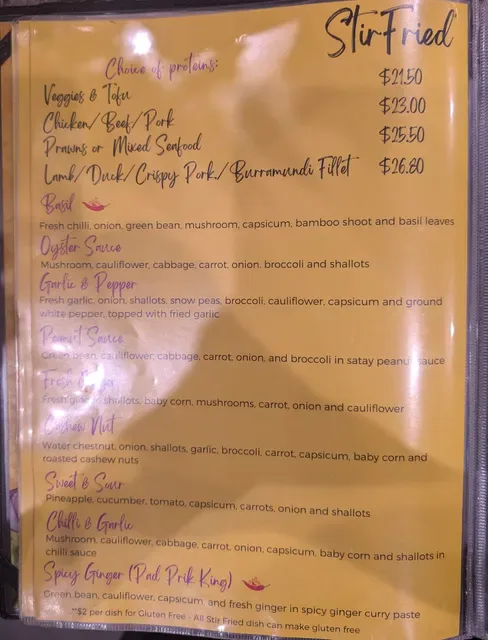 StirFried
Choice of proteins:
Veggies & Tofu $21.50
Chicken/Beef/Pork $23.00
Prawns or Mixed Seafood $25.50
Lamb/Duck/Crispy Pork/Burramundi Fillet $26.80
Basil
Fresh chilli, onion, green bean, mushroom, capsicum, bamboo shoot and basil leaves
Oyster Sauce
Mushroom, cauliflower, cabbage, carrot, onion, broccoli and shallots
Garlic & Pepper
Fresh garlic, onion, shallots, snow peas, broccoli, cauliflower, capsicum and ground
white pepper, topped with fried garlic
Peanut Sauce
Green bean, cauliflower, cabbage, carrot, onion, and broccoli in satay peanut sauce
Fresh
Fresh shallots, baby corn, mushrooms, carrot, onion and cauliflower
Cashew Nut
Water chestnut, onion, shallots, garlic, broccoli, carrot, capsicum, baby corn and
roasted cashew nuts
Sweet & Sour
Pineapple, cucumber, tomato, capsicum, carrots, onion and shallots
Chilli & Garlic
Mushroom, cauliflower, cabbage, carrot, onion, capsicum, baby corn and shallots in
chilli sauce
Spicy Ginger (Pad Prik King)
Green bean, cauliflower, capsicum, and fresh ginger in spicy ginger curry paste
**$2 per dish for Gluten Free - All Stir Fried dish can make gluten free